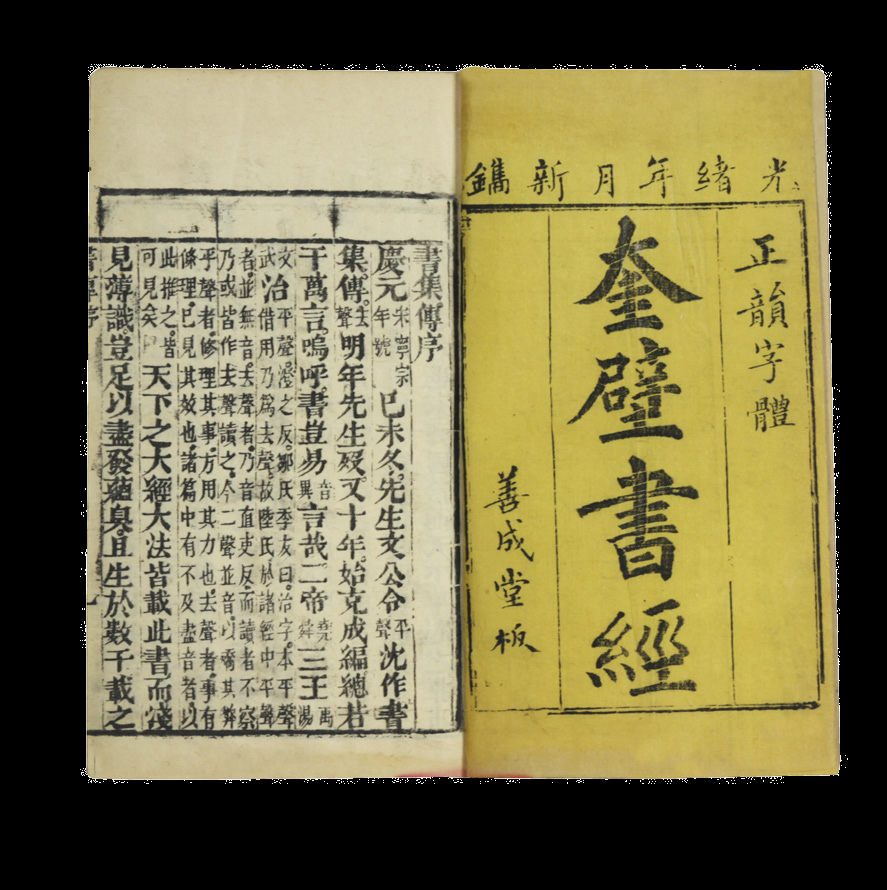 光緒年月新鐫
正韻字體
奎壁書經
善成堂板
書集傳序
慶元宋寧宗年號已未冬先生文公令平聲沈作書
集傳去聲明年先生歿又十年始克成編總若
干萬言嗚呼書豈易音異言哉二帝堯舜三王禹湯
文武治平聲澄之反鄒氏季友曰治字本平聲
借用乃爲去聲故陸氏於諸經中平聲
者並無音去聲者乃音直吏反而讀者不察
乃或皆作去聲讀之今二聲並音以矯其弊
平聲者修理其事方用其力也去聲者事有
條理已見其效也諸篇中有不及盡音者以
此推之皆可見矣天下之大經大法皆載此書而淺
見薄識豈足以盡發蘊奧且生於數千載之